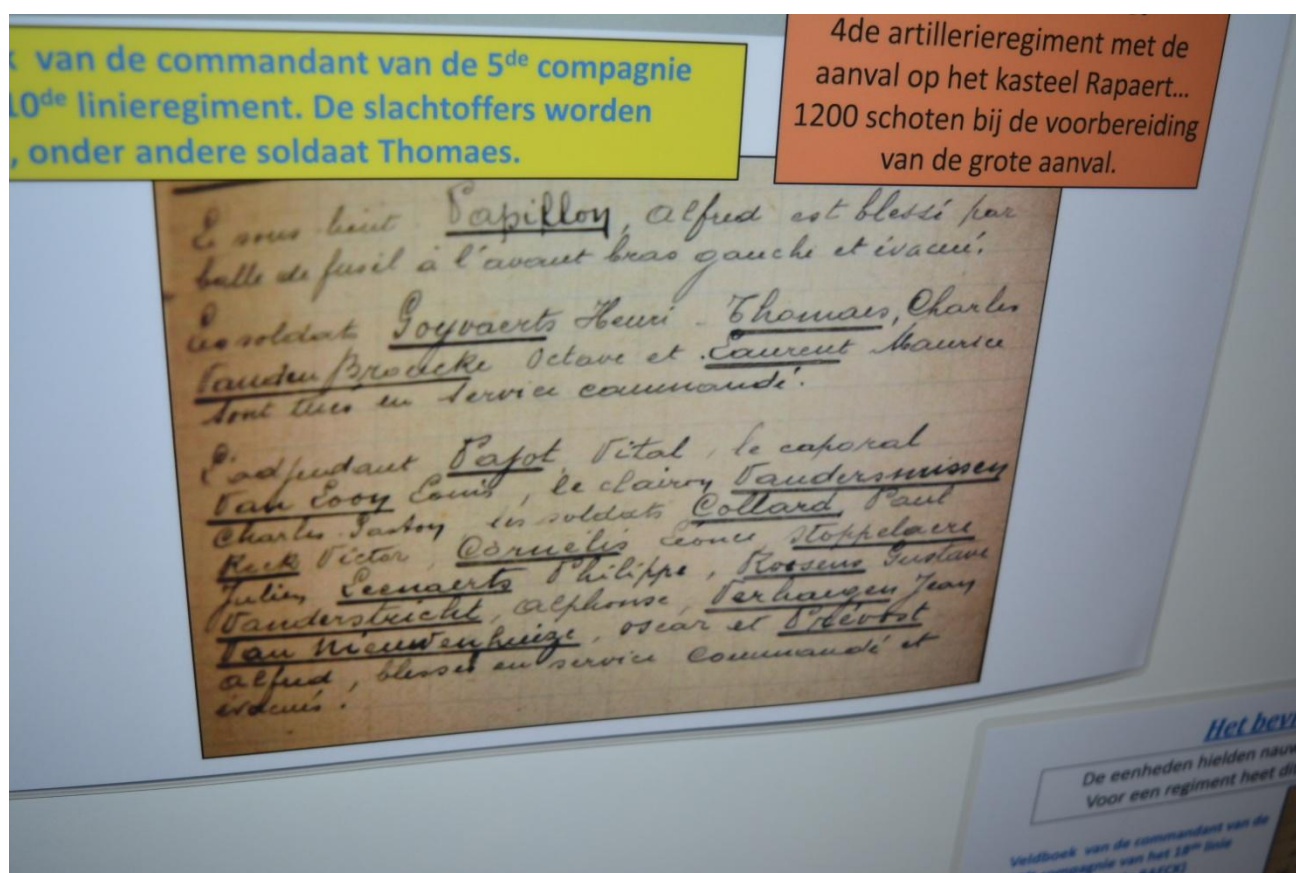 van de commandant van de 5de compagnie
10de linieregiment. De slachtoffers worden
, onder andere soldaat Thomaes.
4de artillerieregiment met de
aanval op het kasteel Rapaert...
1200 schoten bij de voorbereiding
van de grote aanval.
Le sous lieut Papillon, Alfred est blessé par
balle de fusil à l'avant bras gauche et évacué.
Les soldats Goyvaerts Henri - Thomaes, Charles
Vanden Broucke Octave et Laurent Maurice
sont tués en service commandé.
L'adjudant Pajot, Vital, le caporal
Van Looy Louis, le clairon Vandersmissen
Charles Gaston les soldats Collard, Paul
Keck Victor, Cornelis Léonce, Stoppelaere
Julien, Leenaerts Philippe, Roosens Gustave
Vanderstricht, Alphonse, Verhaegen Jean
Van Nieuwenhuize, Oscar et Prévost
Alfred, blessés en service commandé et
évacués.
Het bev
De eenheden hielden nauw
Voor een regiment heet di
Veldboek van de commandant van de
compagnie van het 18de linie